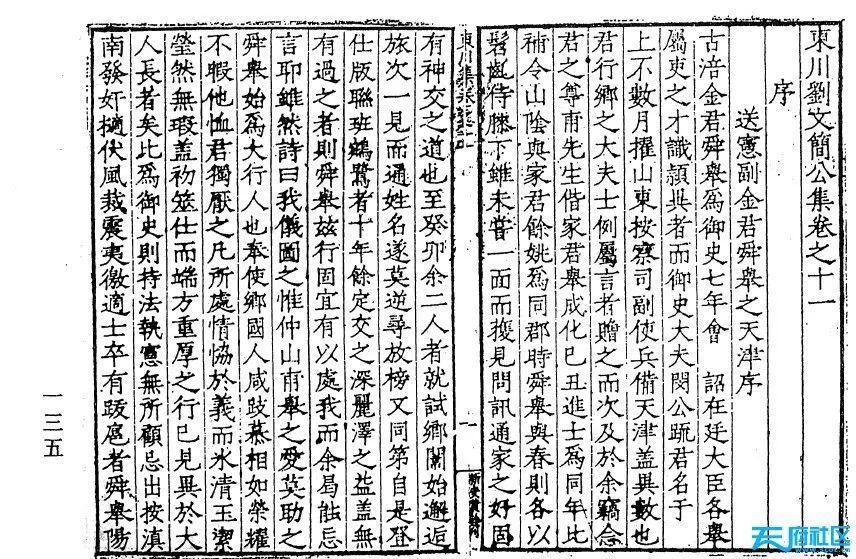 東川劉文簡公集卷之十一
序
送憲副金君舜舉之天津序
古涪金君舜舉為御史七年會 詔在廷大臣各舉
屬吏之才識頴異者而御史大夫閔公疏君名于
上不數月擢山東按察司副使兵備天津盖異數也
君行鄉之大夫士例屬言者贈之而次及於余竊念
君之尊甫先生偕家君舉成化己丑進士為同年比
補令山陰與家君餘姚為同郡時舜舉與春則各以
髫齔侍膝下雖未嘗一面而獲見問訊通家之好固
東川集卷之十一
一
有神交之道也至癸卯余二人者就試鄉闈始邂逅
旅次一見而通姓名遂莫逆尋放榜又同第自是登
仕版聯班鵷鷺者十年餘定交之深麗澤之益盖無
有過之者則舜舉兹行固宜有以處我而余曷能忘
言耶雖然詩曰我儀圖之惟仲山甫舉之愛莫助之
舜舉始為大行人也奉使鄉國人咸跂慕相如榮耀
不暇他恤君獨厭之凡所處情恊於義而氷清玉潔
瑩然無瑕盖初筮仕而端方重厚之行已見異於大
人長者矣比為御史則持法執憲無所顧忌出按滇
南發奸擿伏風裁震夷徼適士卒有跋扈者舜舉陽
一三五
天府社区